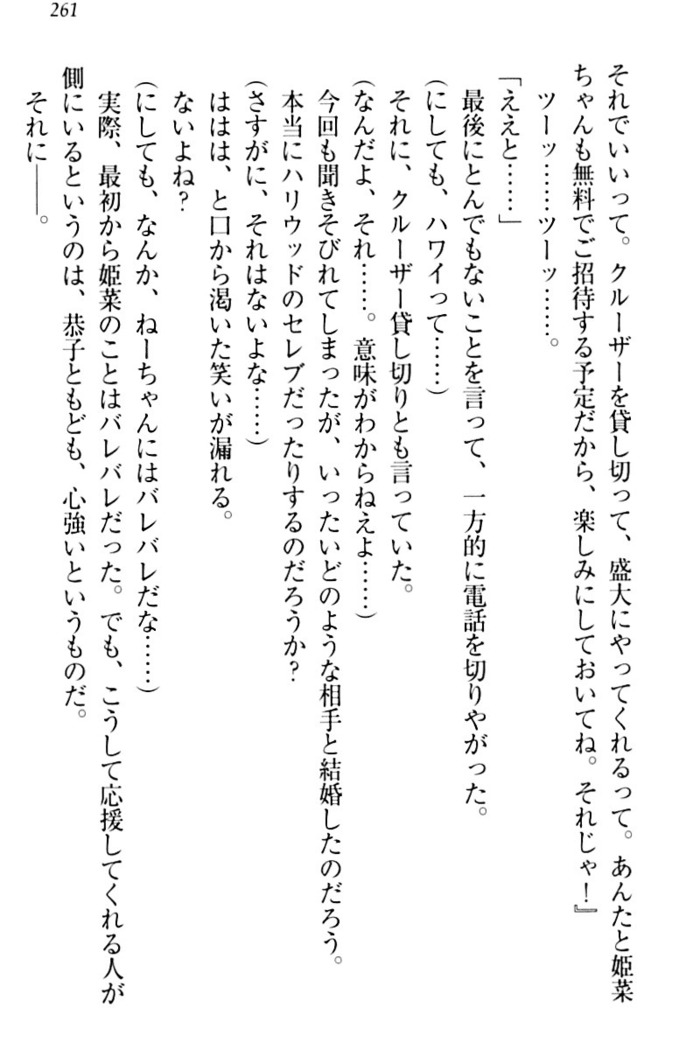 261
それでいいって。クルーザーを貸し切って、盛大にやってくれるって。あんたと姫菜
ちゃんも無料でご招待する予定だから、楽しみにしておいてね。それじゃ！』
ツーッ……ツーッ……。
「ええと……」
最後にとんでもないことを言って、一方的に電話を切りやがった。
(にしても、ハワイって……)
それに、クルーザー貸し切りとも言っていた。
(なんだよ、それ……。意味がわからねえよ……)
今回も聞きそびれてしまったが、いったいどのような相手と結婚したのだろう。
本当にハリウッドのセレブだったりするのだろうか？
(さすがに、それはないよな……)
ははは、と口から渇いた笑いが漏れる。
ないよね？
(にしても、なんか、ねーちゃんにはバレバレだな……)
実際、最初から姫菜のことはバレバレだった。でも、こうして応援してくれる人が
側にいるというのは、恭子ともども、心強いというものだ。
それに――。